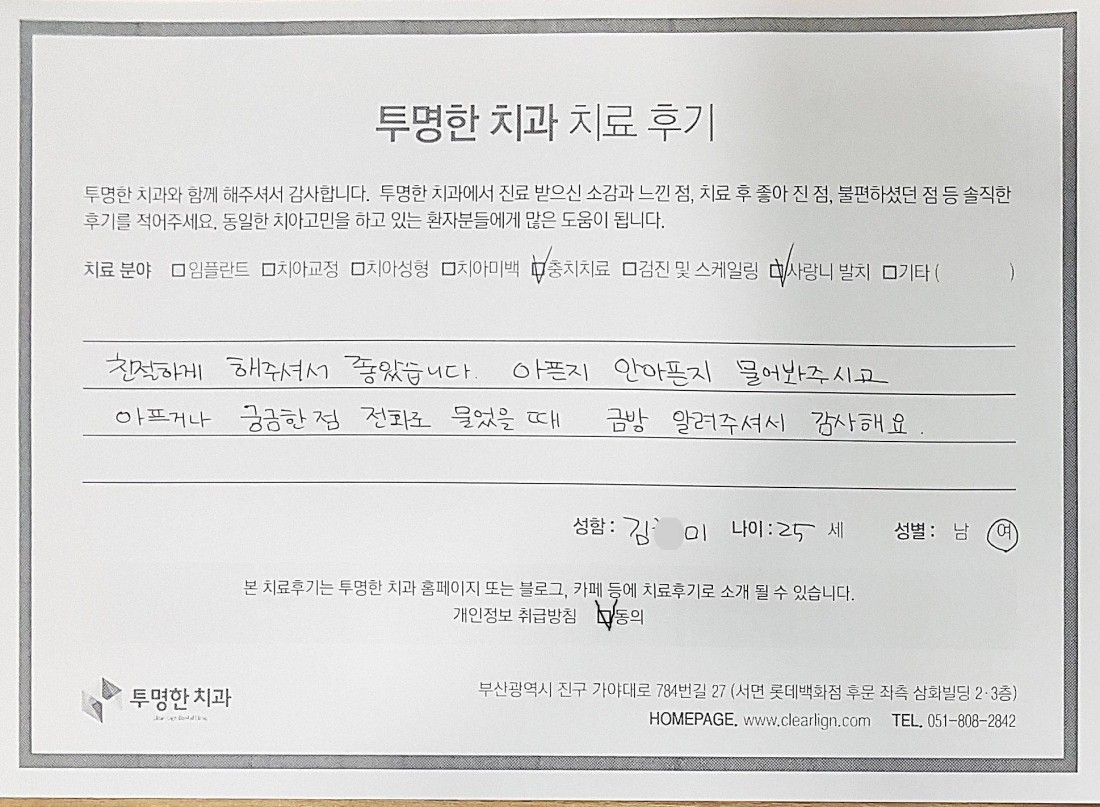 투명한 치과 치료 후기
투명한 치과와 함께 해주셔서 감사합니다. 투명한 치과에서 진료 받으신 소감과 느낀 점, 치료 후 좋아 진 점, 불편하셨던 점 등 솔직한
후기를 적어주세요. 동일한 치아고민을 하고 있는 환자분들에게 많은 도움이 됩니다.
치료 분야 □임플란트 □치아교정 □치아성형 □치아미백 ☑충치치료 □검진 및 스케일링 ☑사랑니 발치 □기타 ( )
친절하게 해주셔서 좋았습니다. 아픈지 안아픈지 물어봐주시고
아프거나 궁금한점 전화로 물었을 때 금방 알려주셔서 감사해요.
성함 : 김 미 나이 : 25 세 성별 : 남 여
본 치료후기는 투명한 치과 홈페이지 또는 블로그, 카페 등에 치료후기로 소개 될 수 있습니다.
개인정보 취급방침 ☑동의
투명한 치과
부산광역시 진구 가야대로 784번길 27 (서면 롯데백화점 후문 좌측 삼화빌딩 2·3층)
HOMEPAGE. www.clearlign.com TEL. 051-808-2842